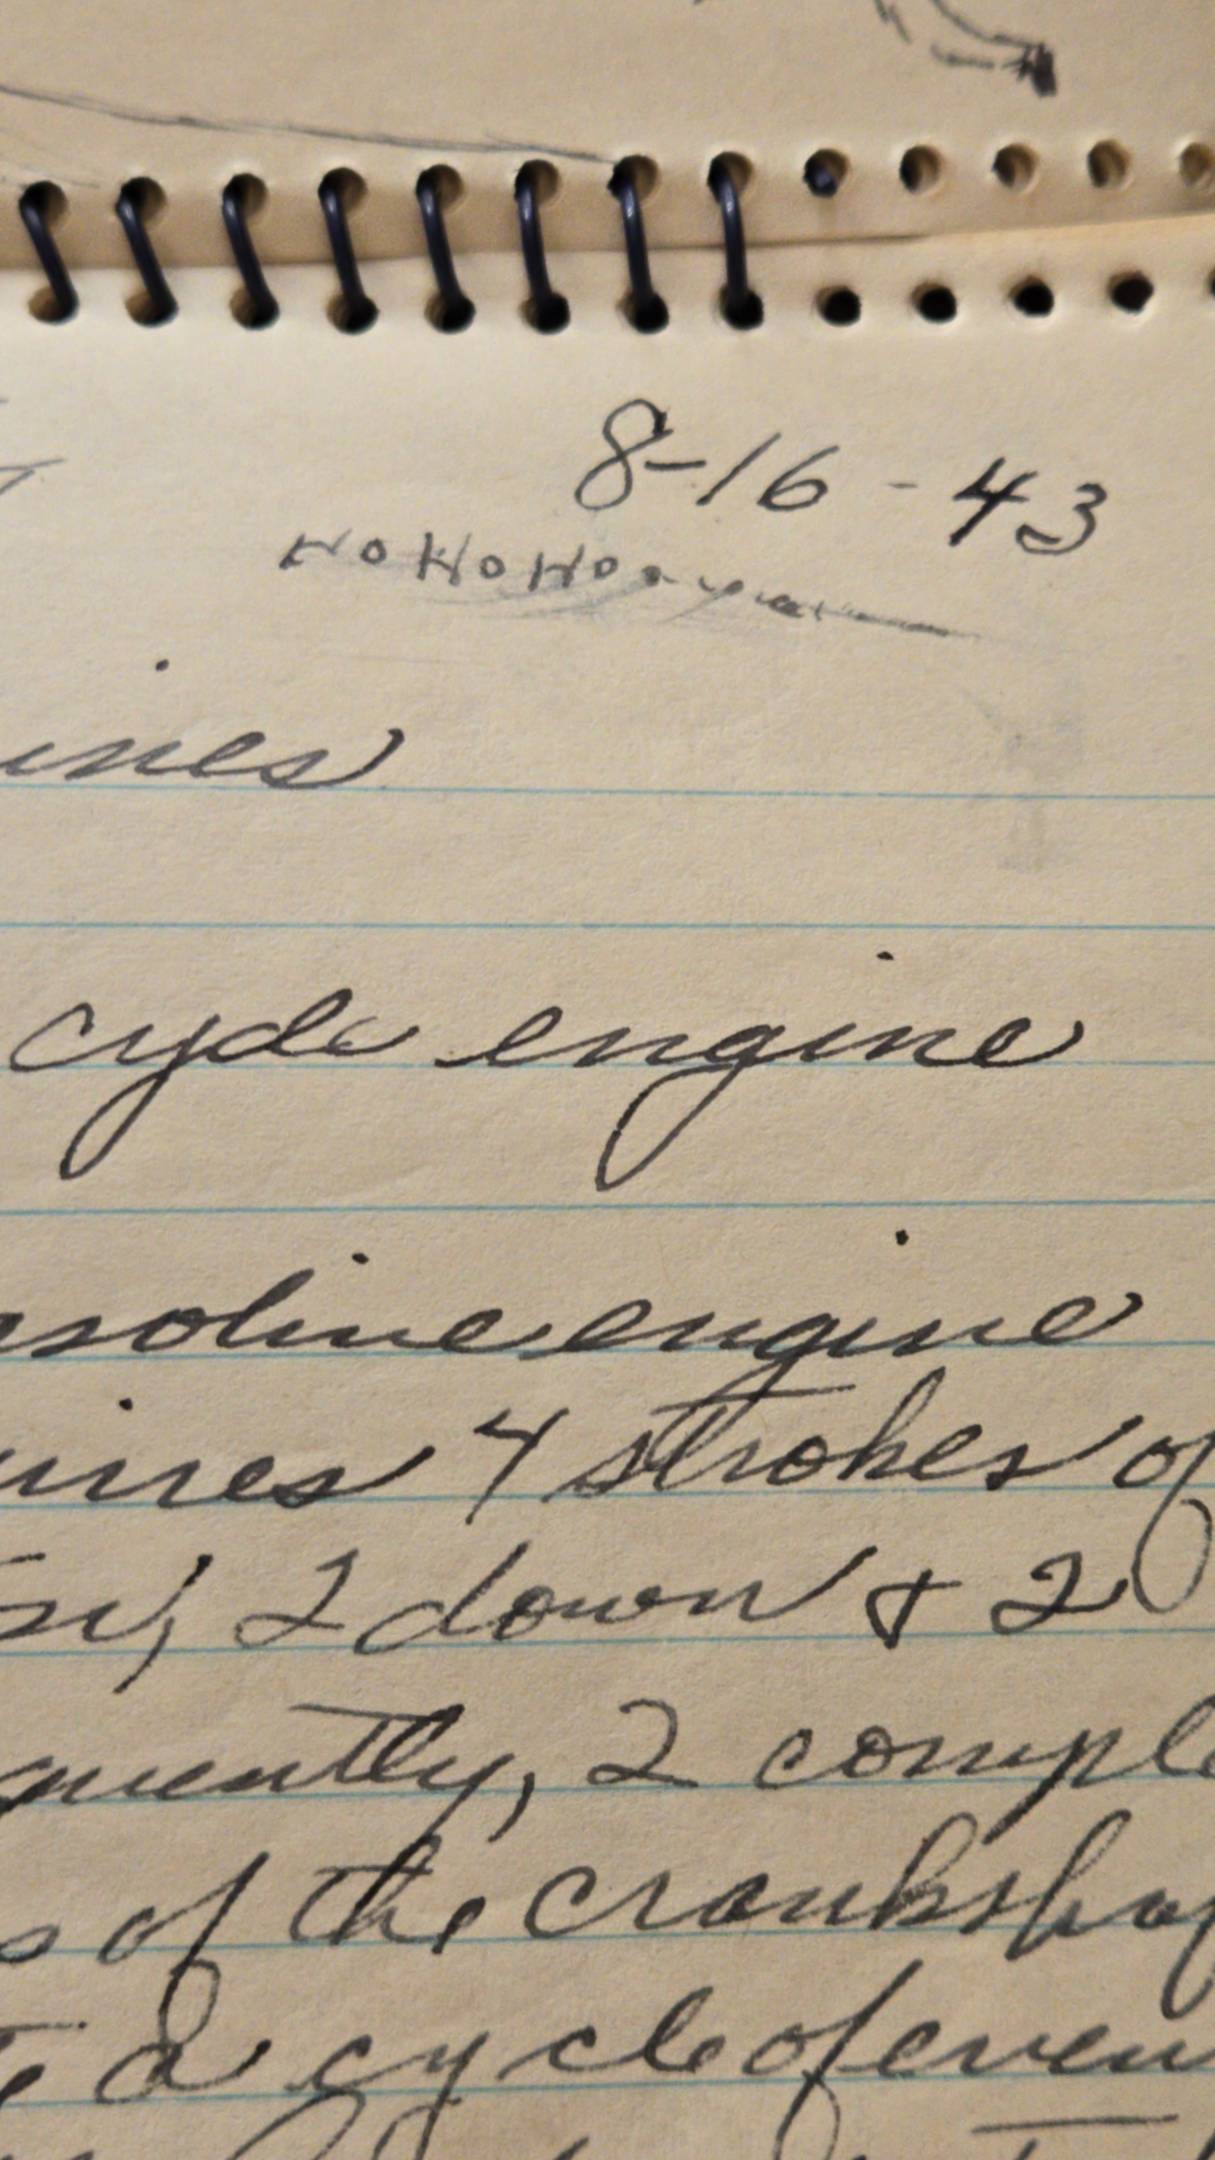 8-16-43
HoHoHo
ines
cycle engine
asoline engine
uires 4 strokes of
n, 2 down & 2
quently, 2 comple
s of the crankshaf
a cycle of even